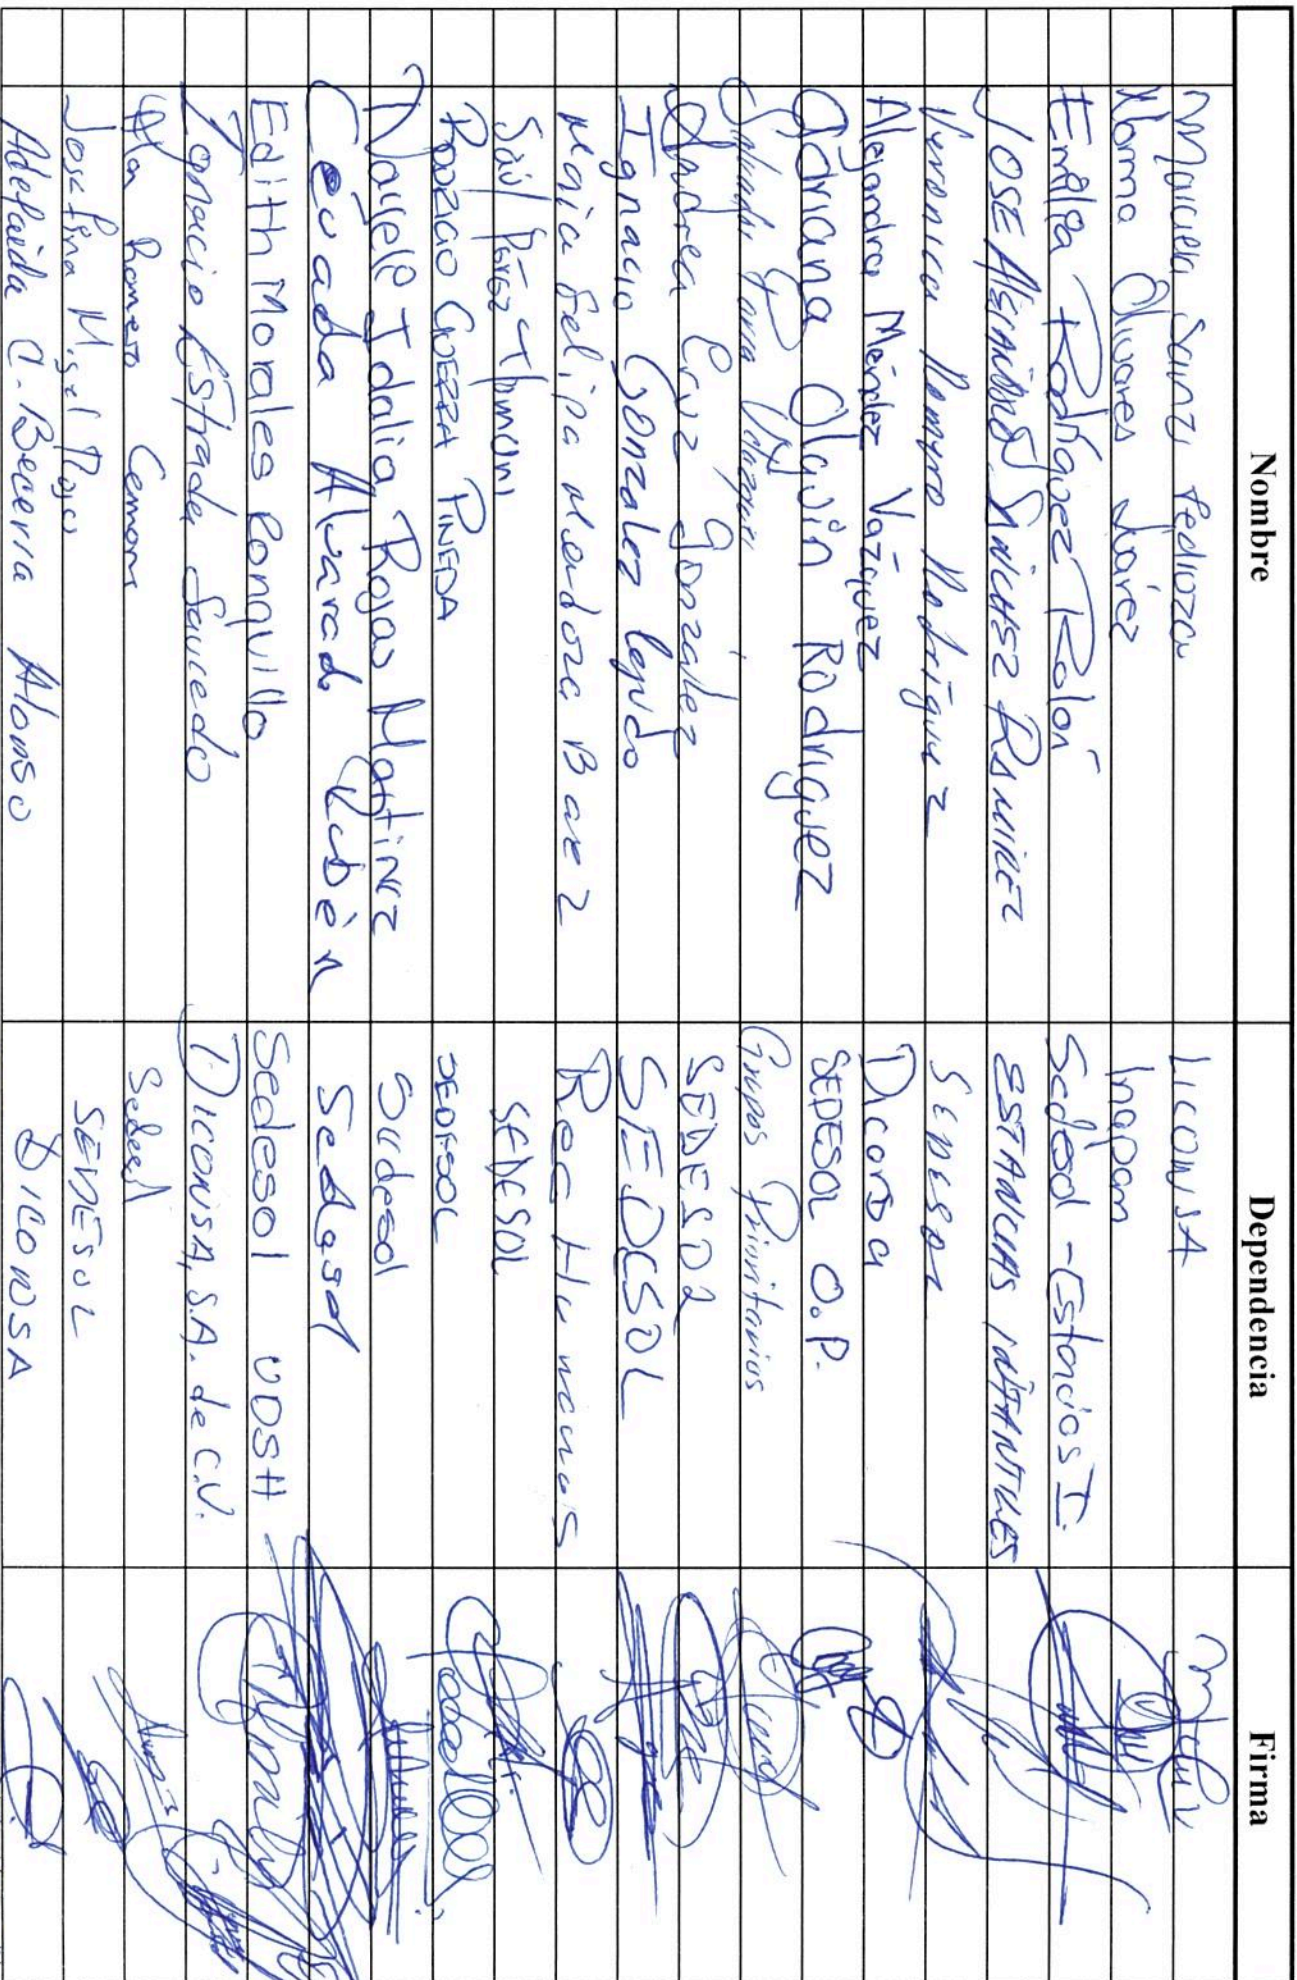 Nombre Dependencia Firma
Maricela Sainz Pedroza LICONSA
Norma Olivares Juárez Inapam
Emilia Rodríguez Rolón Sedesol - Estancias I.
JOSE Alejandro SANCHEZ RAMIREZ ESTANCIAS INFANTILES
Veronica Romero Rodríguez
Alejandra Méndez Vázquez Diconsa
Adriana Olguín Rodriguez SEDESOL O.P.
Parra Grupos Prioritarios
Andrea Cruz González SEDESOL
Ignacio González SEDESOL
Maria Felipa Mendoza Baez Rec Humanos
Saúl Pérez SEDESOL
ROCIO GUERRA PINEDA SEDESOL
Nayele Idalia Rojas Martinez Sedesol
Alvarado Rubén Sedesol
Edith Morales Ronquillo Sedesol UDSH
Ignacio Estrada Saucedo DICONSA, S.A. de C.V.
Romero Sedesol
Josefina M. SEDESOL
Adelaida C. Becerra Alonso DICONSA